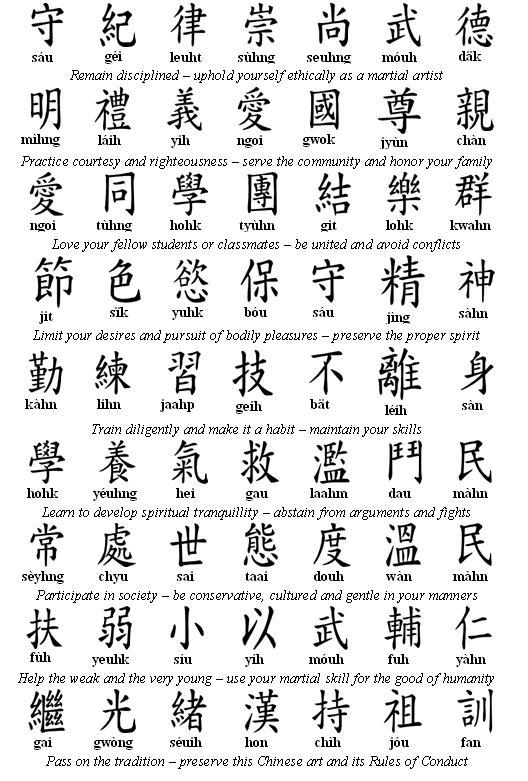 守 紀 律 崇 尚 武 德
sáu géi leuht sùhng seuhng móuh dāk
Remain disciplined – uphold yourself ethically as a martial artist
明 禮 義 愛 國 尊 親
mìhng láih yih ngoi gwok jyùn chàn
Practice courtesy and righteousness – serve the community and honor your family
愛 同 學 團 結 樂 群
ngoi tùhng hohk tyùhn git lohk kwahn
Love your fellow students or classmates – be united and avoid conflicts
節 色 慾 保 守 精 神
jit sīk yuhk bóu sáu jìng sàhn
Limit your desires and pursuit of bodily pleasures – preserve the proper spirit
勤 練 習 技 不 離 身
kàhn lihn jaahp geih bāt léih sàn
Train diligently and make it a habit – maintain your skills
學 養 氣 救 濫 鬥 民
hohk yéuhng hei gau laahm dau màhn
Learn to develop spiritual tranquillity – abstain from arguments and fights
常 處 世 態 度 溫 民
sèyhng chyu sai taai douh wàn màhn
Participate in society – be conservative, cultured and gentle in your manners
扶 弱 小 以 武 輔 仁
fùh yeuhk síu yíh móuh fuh yàhn
Help the weak and the very young – use your martial skill for the good of humanity
繼 光 緒 漢 持 祖 訓
gai gwòng séuih hon chìh jóu fan
Pass on the tradition – preserve this Chinese art and its Rules of Conduct